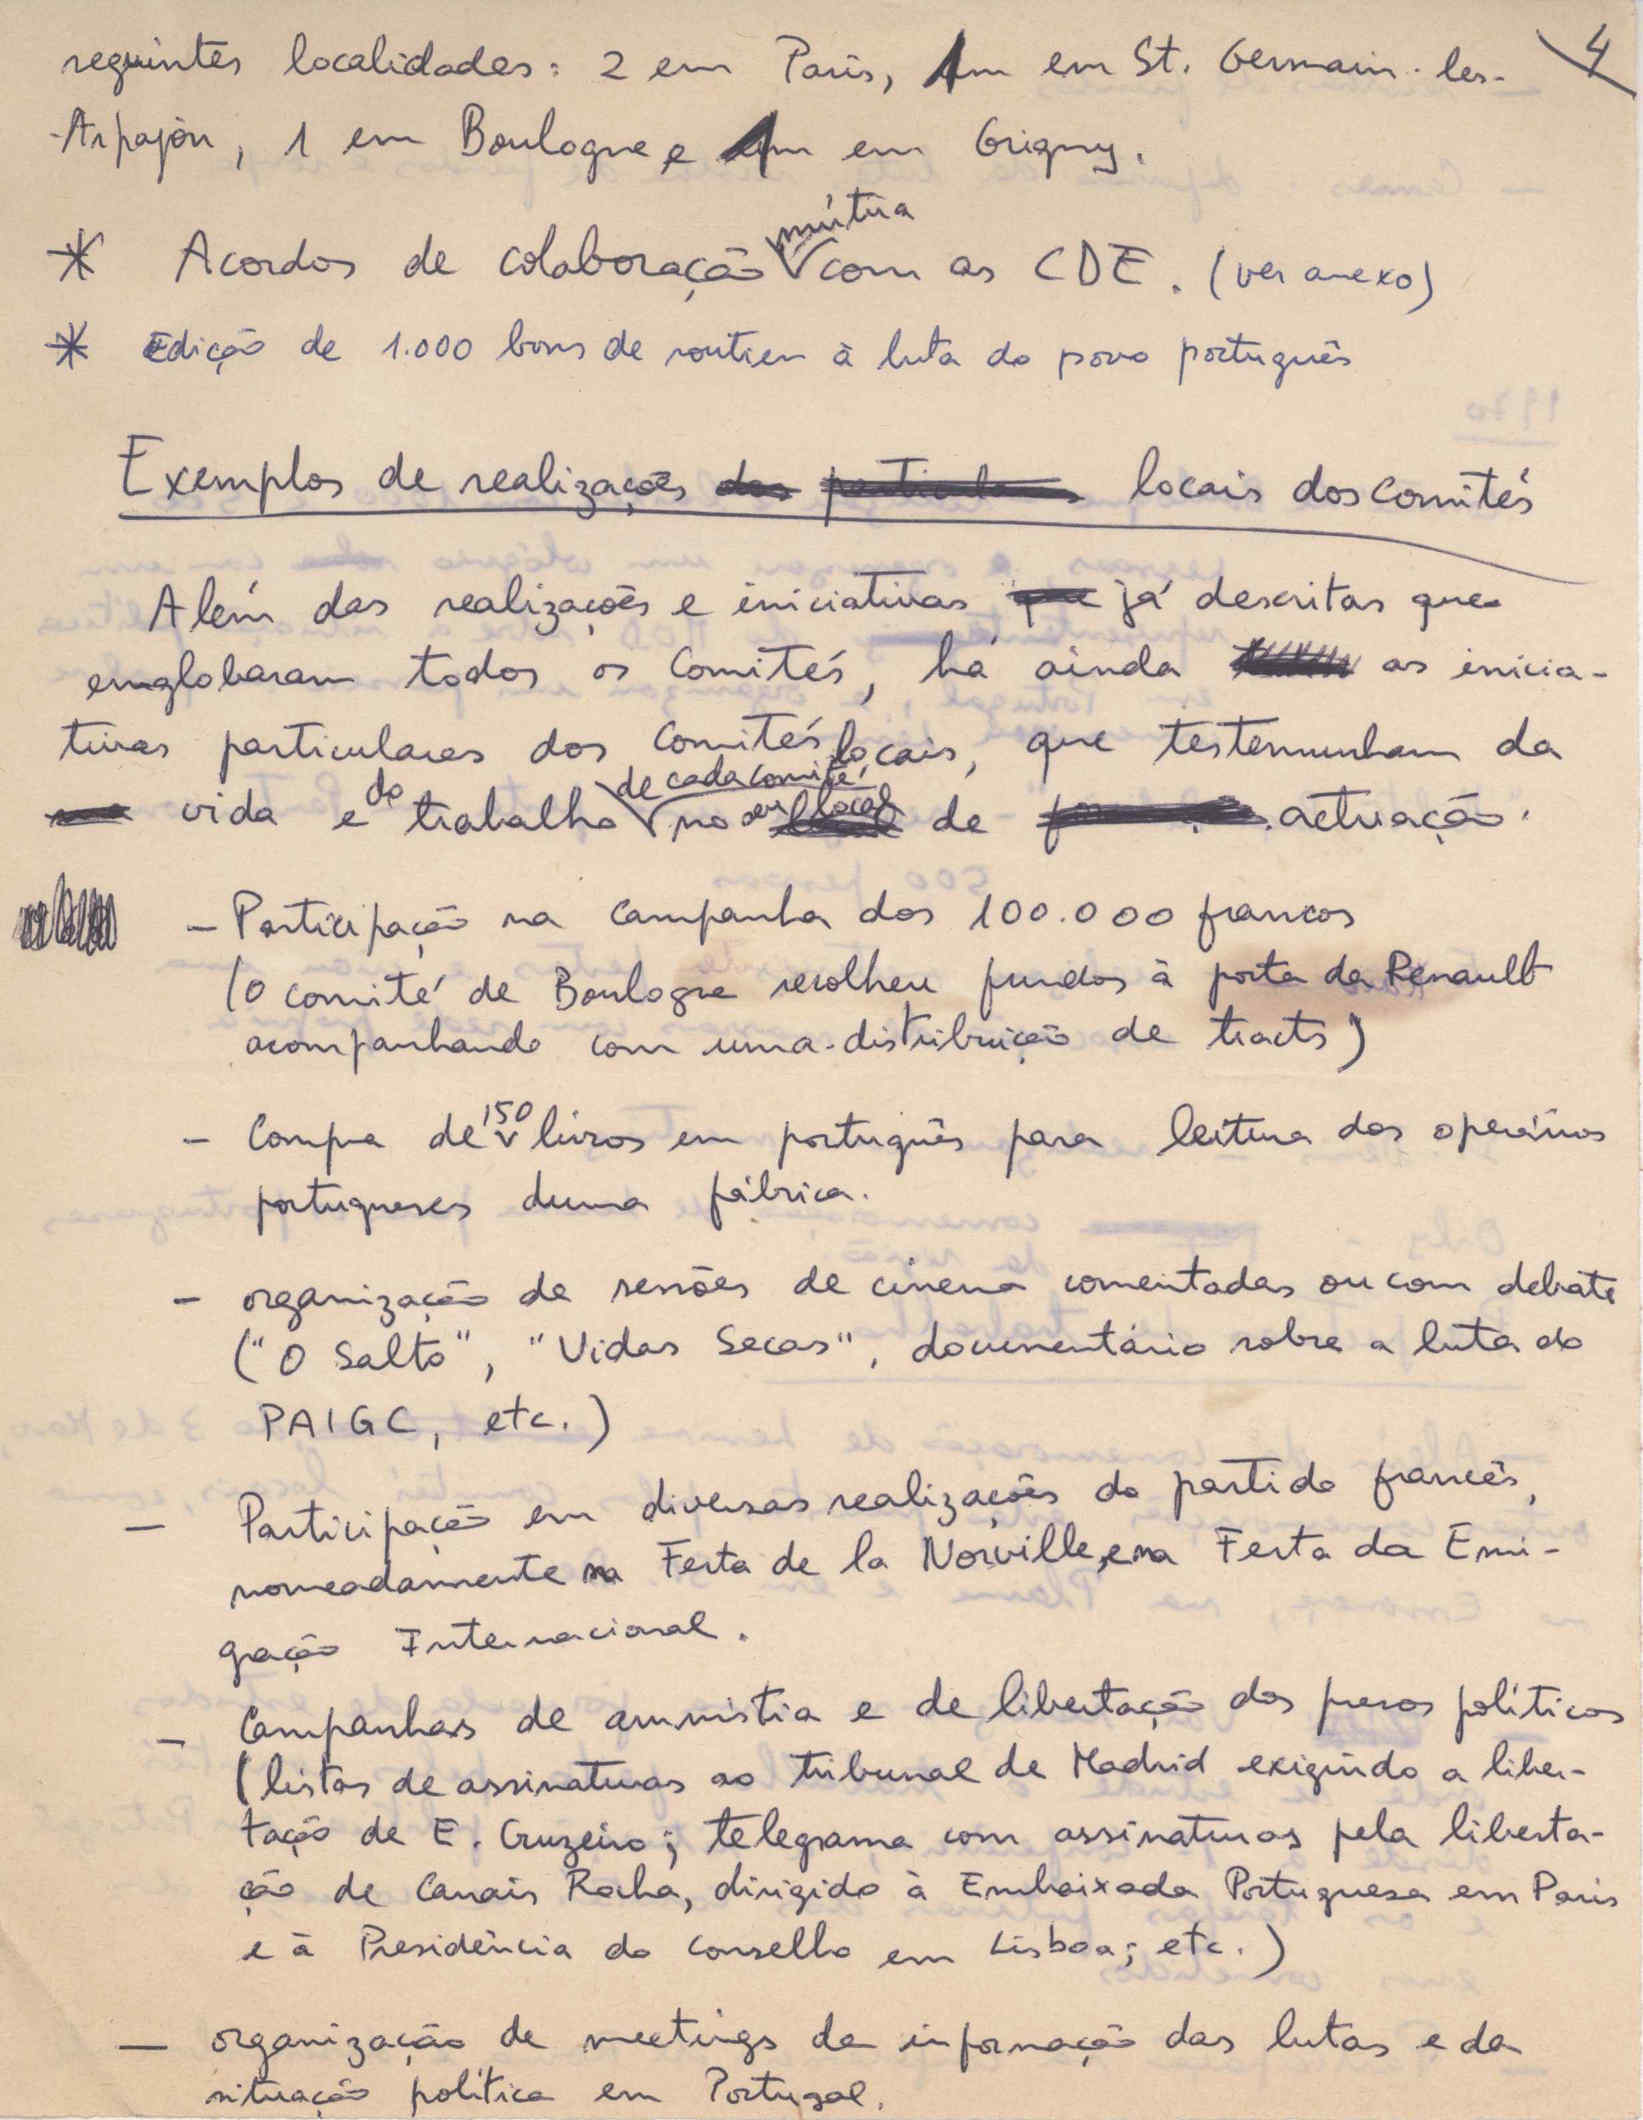 seguintes localidades: 2 em Paris, 1 em St. Germain-les- 4
-Arpajon, 1 em Boulogne e 1 em Grigny.
* Acordos de colaboração mútua com as CDE. (ver anexo)
* Edição de 1.000 bons de soutien à luta do povo português
Exemplos de realizações locais dos comités
Além das realizações e iniciativas já descritas que
englobaram todos os comités, há ainda as inicia-
tivas particulares dos comités locais, que testemunham da
vida e do trabalho de cada comité, no seu local de actuação.
- Participação na campanha dos 100.000 francos
(o comité de Boulogne recolheu fundos à porta da Renault
acompanhando com uma distribuição de tracts)
- Compra de 150 livros em português para leitura dos operários
portugueses duma fábrica.
- organização de sessões de cinema comentadas ou com debate
("O Salto", "Vidas Secas", documentário sobre a luta do
PAIGC, etc.)
- Participação em diversas realizações do partido francês,
nomeadamente na Festa de la Norville, e na Festa da Emi-
gração Internacional.
- Campanhas de amnistia e de libertação dos presos políticos
(listas de assinaturas ao tribunal de Madrid exigindo a liber-
tação de E. Cruzeiro; telegrama com assinaturas pela liberta-
ção de Canais Rocha, dirigido à Embaixada Portuguesa em Paris
e à Presidência do Conselho em Lisboa; etc.)
- organização de meetings de informação das lutas e da
situação política em Portugal.